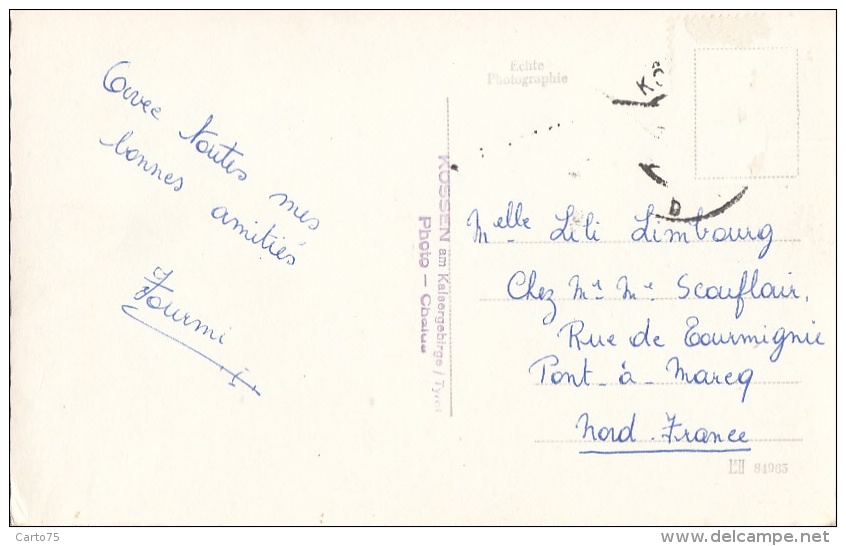 Avec toutes mes
bonnes amitiés
Fourmi
Echte
Photographie
KÖSSEN am Kaisergebirge / Tyrol
Photo –
Melle Lili Limbourg
Chez Mr Me Scouflair,
Rue de Tourmignie
Pont-à-Marcq
Nord. France
84963
Carto75
www.delcampe.net